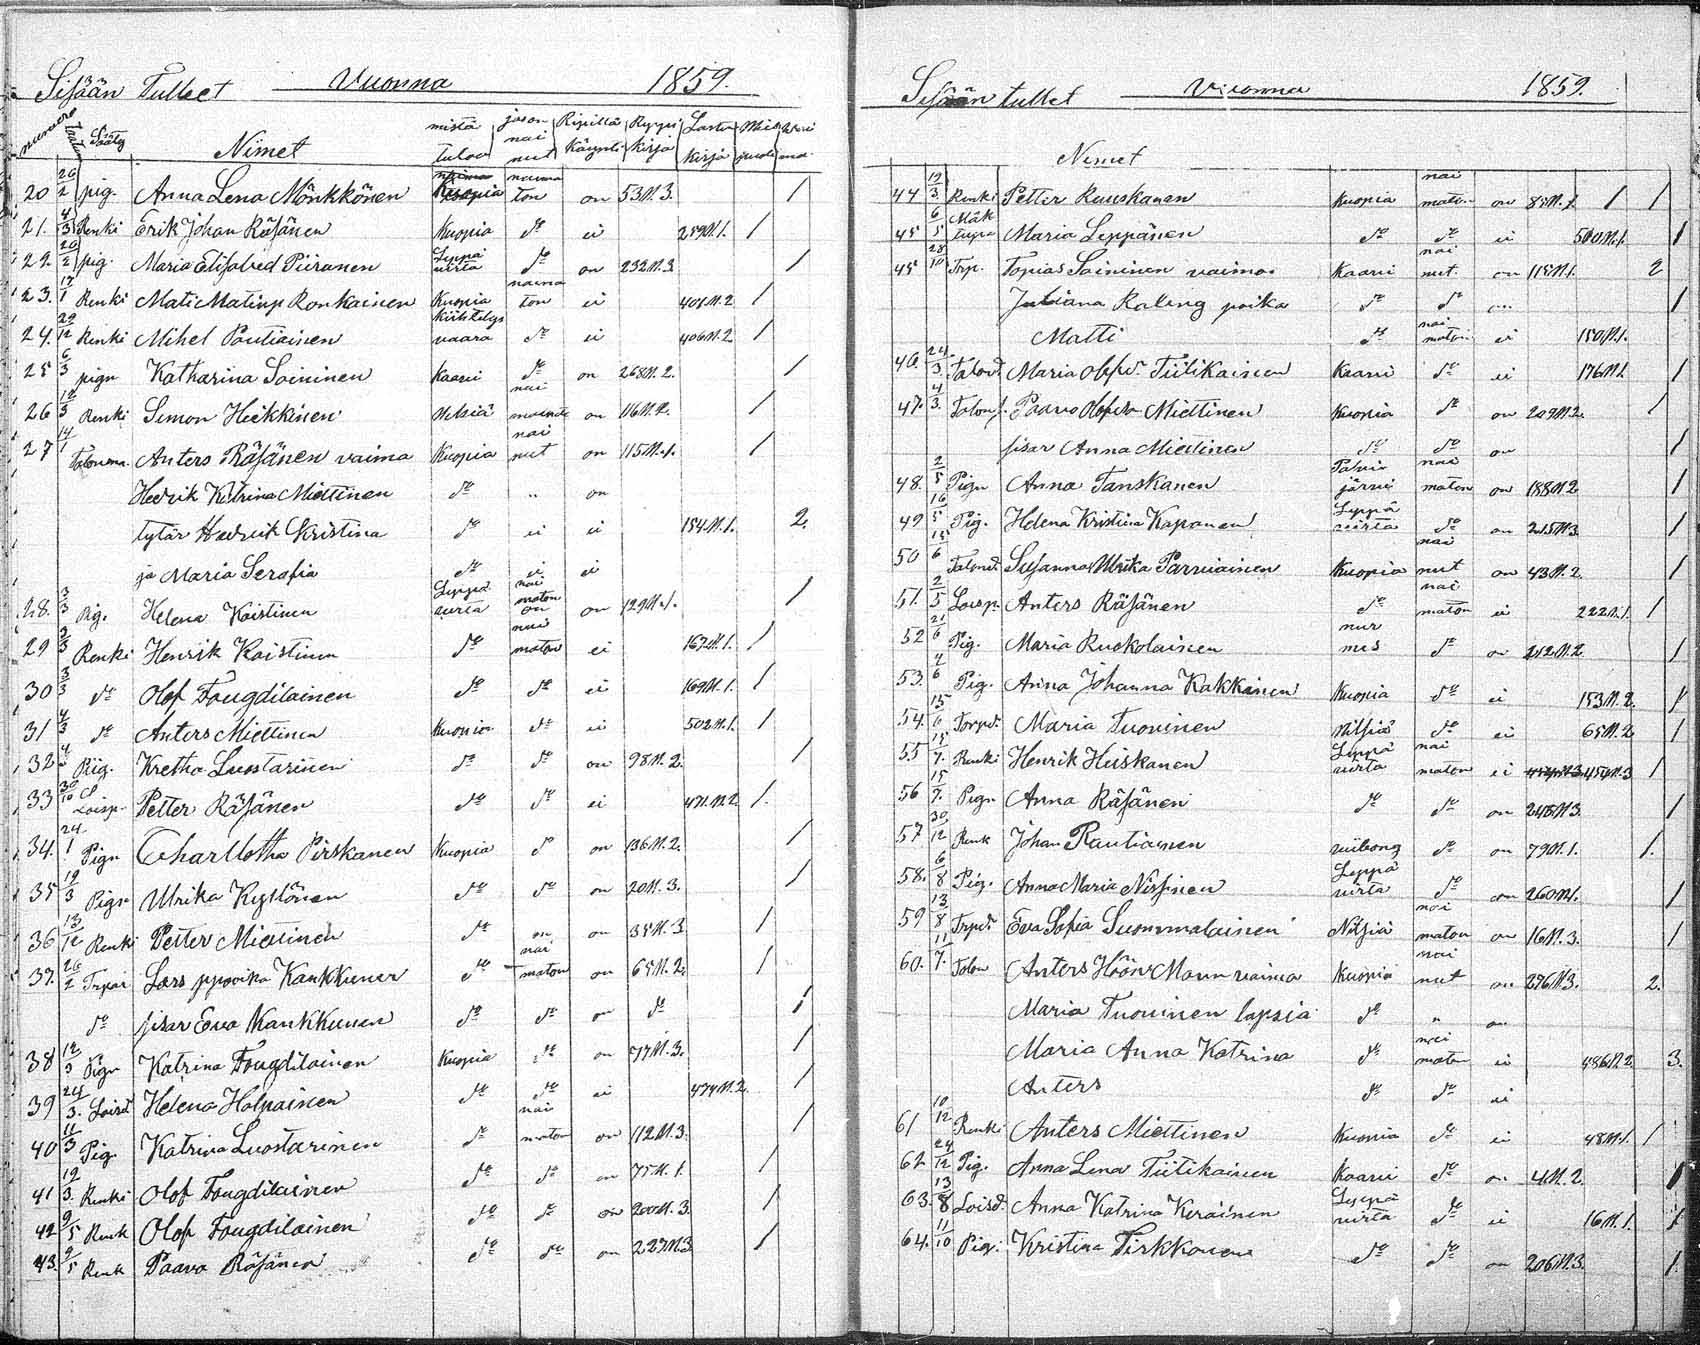 Sisään Tullet Vuonna 1859.
numero Sääty Nimet mistä tulou joson nai nut Ripillä käynti Rippi kirja Lasten kirja Mies puoli
20 26/2 pig. Anna Lena Mönkkönen Kuopia naima ton on 53 N.3. 1
21. 4/3 Renki Erik Johan Räsänen Kuopia do ei 259 N.1. 1
22. 20/2 pig. Maria Elisabed Piiranen Leppä virta do on 232 N.3. 1
23. 17/1 Renki Mati Matinp Ronkainen Kuopia naima ton ei 401 N.2 1
24. 29/12 Renki Mihel Pautiainen Kiihtelys vaara do ei 406 N.2 1
25 6/3 pign Katharina Soininen Kaavi do on 268 N.2. 1
26 12/3 Renki Simon Heikkinen Nilsiä nai on 116 N.2. 1
27 14/1 Anters Räsänen vaimo Kuopia nai nut on 115 N.1. 1
Hedvik Katrina Miettinen do " on
tytär Hedvik Kristina do ei ei 154 N.1. 2.
ja Maria Serafia do ei ei
28. 3/3 Pig. Helena Koistinen Leppä virta nai maton on 129 N.1. 1
29 3/3 Renki Henrik Koistinen do nai maton ei 167 N.1. 1
30 3/3 do Olof Fougdilainen do do ei 169 N.1. 1
31 4/3 do Anters Miettinen Kuopia do ei 502 N.1. 1
32 Piig. Kretha Luostarinen do do on 98 N.2. 1
33 30/10 Loisp. Petter Räsänen do do ei 471 N.2 1.
34. 24/1 Pign Charllotha Pirskanen Kuopia do on 136 N.2. 1
35 19/3 Pign Ulrika Kyllönen do do on 20 N.3. 1
36 13/12 Renki Petter Miettinen do on on 35 N.3 1
37. 26/2 Lars ppoika Kankkunen do nai maton on 65 N.2. 1
do sisar Eva Kankkunen do do on do 1
38 12/3 Pign Katrina Fougdilainen Kuopia do on 77 N.3. 1
39 24/3. Loisd Helena Holpainen do do ei 474 N.2. 1
40 11/3 Pig. Katrina Luostarinen do nai maton on 112 N.3. 1
41 19/3. Renki Olof Fougdilainen do do on 75 N.1. 1
42 9/5 Renk Olof Fougdilainen do do on 200 N.3. 1
43. 9/5 Renk Paavo Räsänen do do on 227 N.3 1
Sisään tullet Vuonna 1859.
Nimet
44 19/3. Renki Petter Ruuskanen Kuopia nai maton on 85 N.1. 1 1
45 6/5 Mäk tupa Maria Leppänen do do ei 500 N.1. 1
45 28/10 Trp. Topias Soininen vaimo Kaavi nai nut. on 115 N.1. 2
Juliana Raling poika do do ... 1
Matti do nai maton ei 150 N.1.
46. 24/3. Talond. Maria Olofsd. Tiilikainen Kaavi do ei 176 N.1 1
47. 4/3. Talonp. Paavo Olofsson Miettinen Kuopia do on 209 N.2. 1
sisar Anna Miettinen do do on 1
48. 2/5 Pign Anna Tanskanen Polvi järvi nai maton on 188 N.2 1
49 16/5 Pig. Helena Kristina Kaponen Leppä virta do on 215 N.3 1
50 15/6 Talond. Susanna Ulrika Parviainen Kuopia nai nut on 43 N.2. 1
51. 2/5 Loisp. Anters Räsänen do nai maton ei 222 N.1. 1
52 21/6 Pig. Maria Ruokolainen nur mes do on 212 N.2. 1
53. 2/6 Pig. Anna Johanna Kakkinen Kuopia do ei 153 N.2. 1
54. 15/6 Torpd. Maria Tuovinen Nilsiä do ei 65 N.2 1
55 15/7. Renki Henrik Heiskanen Leppä virta nai maton ei 454 N.3 1
56 15/7. Pign Anna Räsänen do do on 248 N.3. 1
57 30/12 Renk Johan Rautiainen viiborg do on 79 N.1. 1.
58. 6/8 Pig. Anna Maria Nissinen Leppä virta do on 260 N.1. 1
59 13/8 Trpd Eva Sofia Suommalainen Nilsiä nai maton on 16 N.3. 1
60. 11/7. Talon Anters Höön Mann vaimo Kuopia nai nut on 276 N.3. 2.
Maria Tuovinen lapsia do " on
Maria Anna Katrina do nai maton ei 486 N.2. 3.
Anters do do ei
61 10/12 Renki Anters Miettinen Kuopia do ei 48 N.1. 1
62 24/12 Pig. Anna Lena Tiilikainen Kaavi do on 4 N.2. 1
63. 13/8 Loisd. Anna Katrina Keräinen Leppä virta do ei 16 N.1. 1
64. 11/10 Pig. Kristina Tirkkonen do do on 206 N.3. 1.